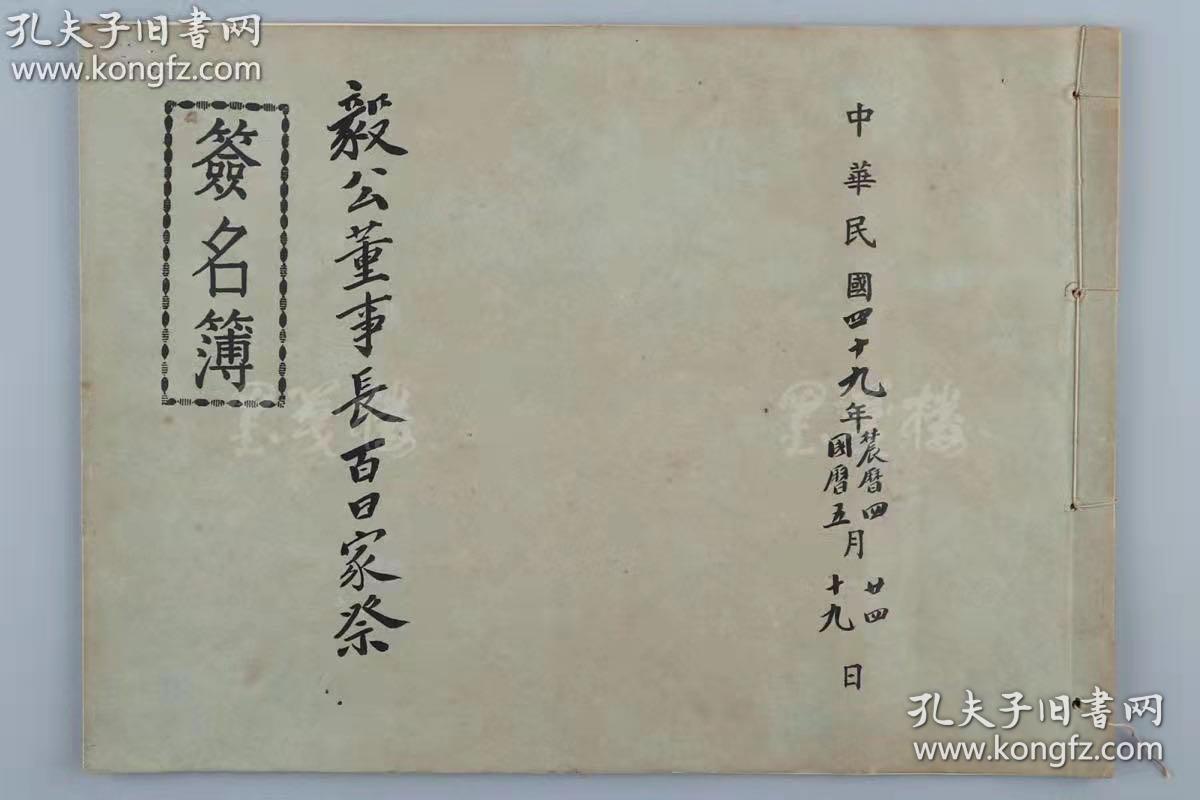 孔夫子旧书网
www.kongfz.com
中華民國四十九年農曆四月廿四日
國曆五月十九日
毅公董事長百日家祭
簽名簿
孔夫子旧书网
www.kongfz.com